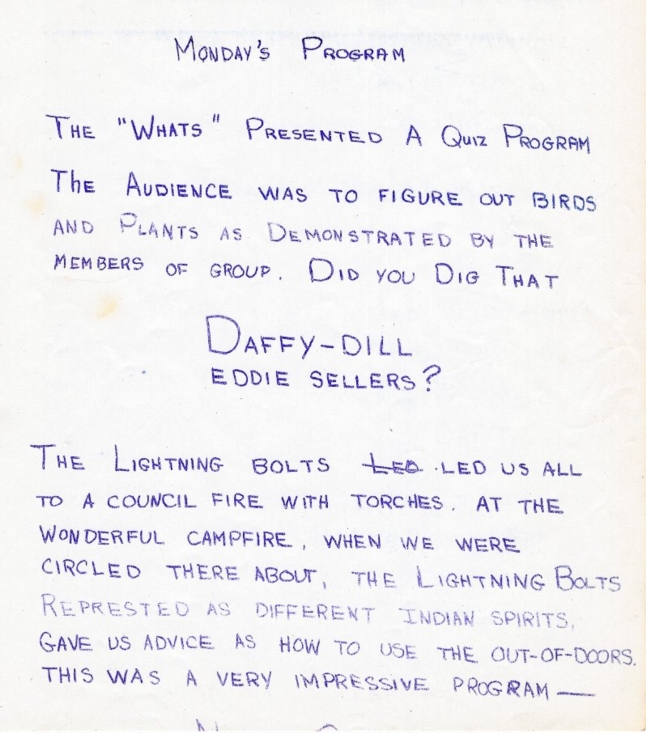 Monday's Program
The "Whats" Presented A Quiz Program
The Audience was to figure out birds
and Plants as Demonstrated by the
members of group. Did you Dig That
Daffy-dill
Eddie Sellers?
The Lightning bolts Led led us all
to a council fire with torches. At the
wonderful campfire, when we were
circled there about, the Lightning Bolts
Represted as different Indian spirits,
gave us advice as how to use the out-of-doors.
This was a very impressive program —